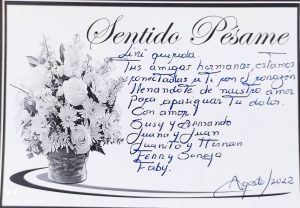 Sentido Pésame
Lini querida
Tus amigas hermanas, estamos
conectadas a Ti por el corazón
llenandote de nuestro amor
para apasiguar Tu dolor.
Con amor
Susy y Armando
Juana y Juan
Juanito y Hernan
Fenny
Faby.
Agosto/2022